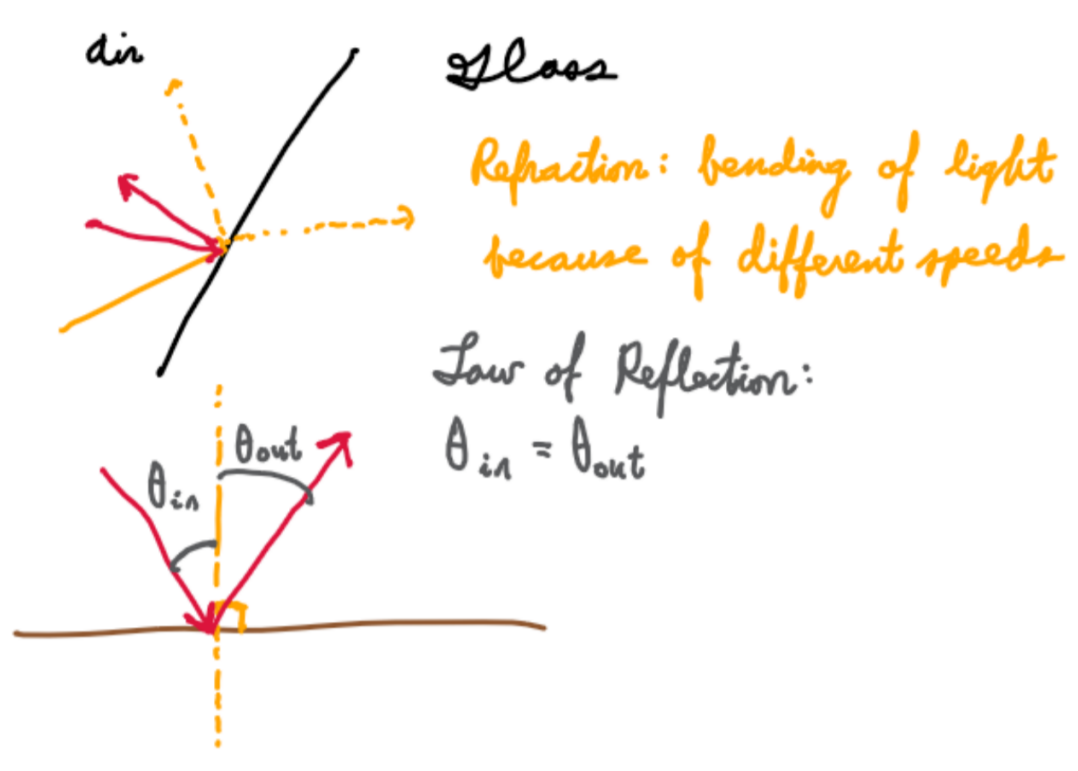 air
Glass
Refraction: bending of light
because of different speeds
Law of Reflection:
θin = θout
θout
θin